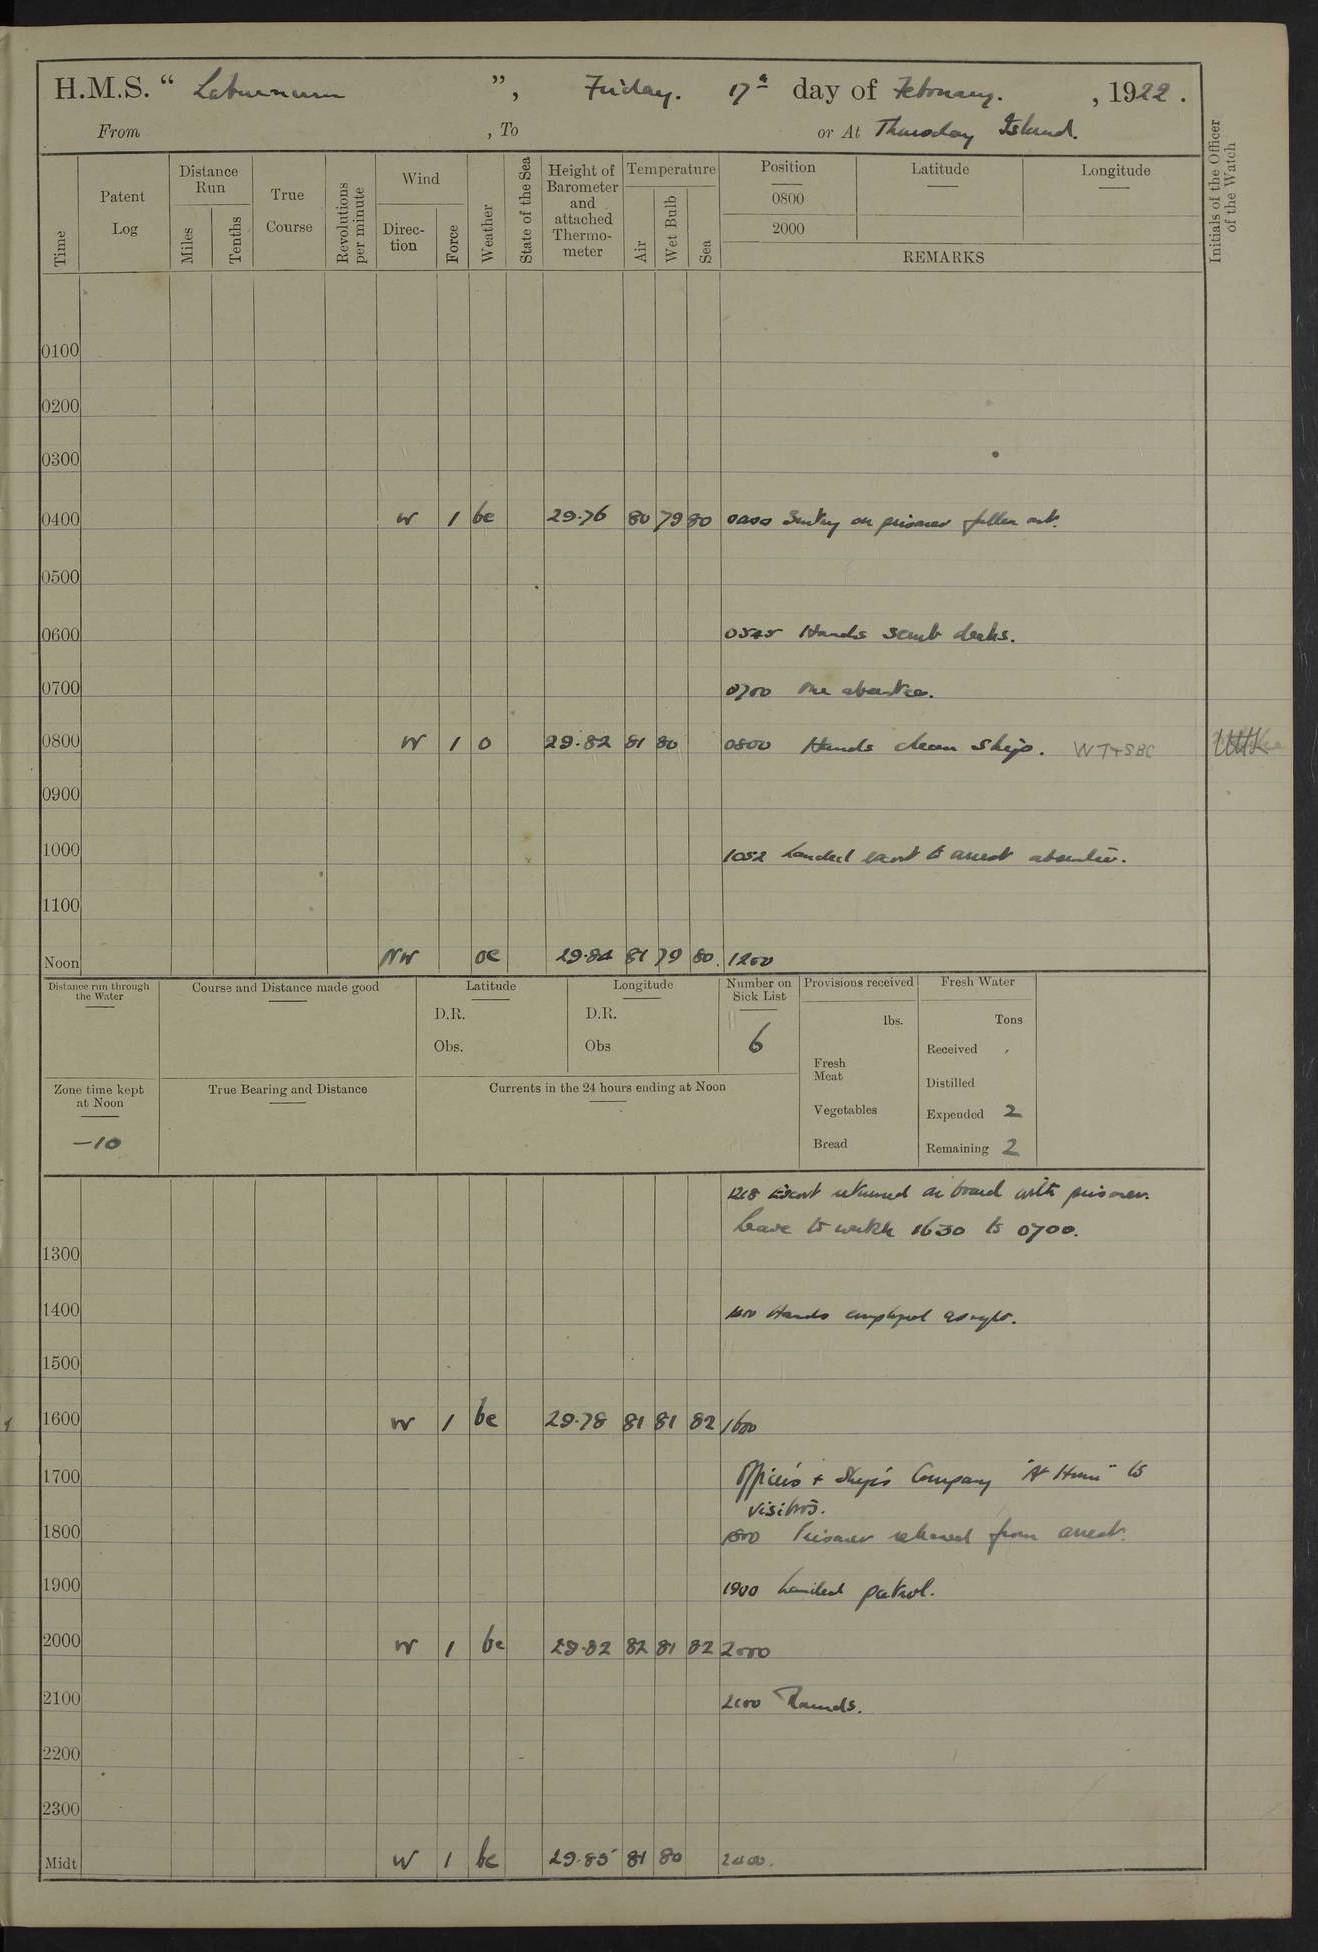 H.M.S. “ Laburnum ”, Friday. 17th day of February. , 1922 .
From , To or At Thursday Island.
Time
Patent Log
Distance Run
Miles
Tenths
True Course
Revolutions per minute
Wind
Direction
Force
Weather
State of the Sea
Height of Barometer and attached Thermometer
Temperature
Air
Wet Bulb
Sea
Position
0800
2000
Latitude
Longitude
REMARKS
Initials of the Officer of the Watch
0100
0200
0300
0400 W 1 bc 29.76 80 79 80 0400 Sentry on prisoner fallen out.
0500
0600 0545 Hands scrub decks.
0700 0700 One absentee.
0800 W 1 o 29.82 81 80 0800 Hands clean ship. WT+SBC
0900
1000 1052 Landed escort to arrest absentee.
1100
Noon NW oc 29.84 81 79 80. 1200
Distance run through the Water
Course and Distance made good
Latitude
D.R.
Obs.
Longitude
D.R.
Obs
Number on Sick List
6
Provisions received
lbs.
Fresh Meat
Vegetables
Bread
Fresh Water
Tons
Received
Distilled
Expended 2
Remaining 2
Zone time kept at Noon
–10
True Bearing and Distance
Currents in the 24 hours ending at Noon
1218 Escort returned on board with prisoner.
Leave to watch 1630 to 0700.
1300
1400 1400 Hands employed as reqte.
1500
1600 W 1 bc 29.78 81 81 82 1600
1700 Officers + Ship's Company "At Home" to
visitors.
1800 1800 Prisoner released from arrest.
1900 1900 Landed patrol.
2000 W 1 bc 29.82 82 81 82 2000
2100 2100 Rounds.
2200
2300
Midt W 1 bc 29.85 81 80 2400.